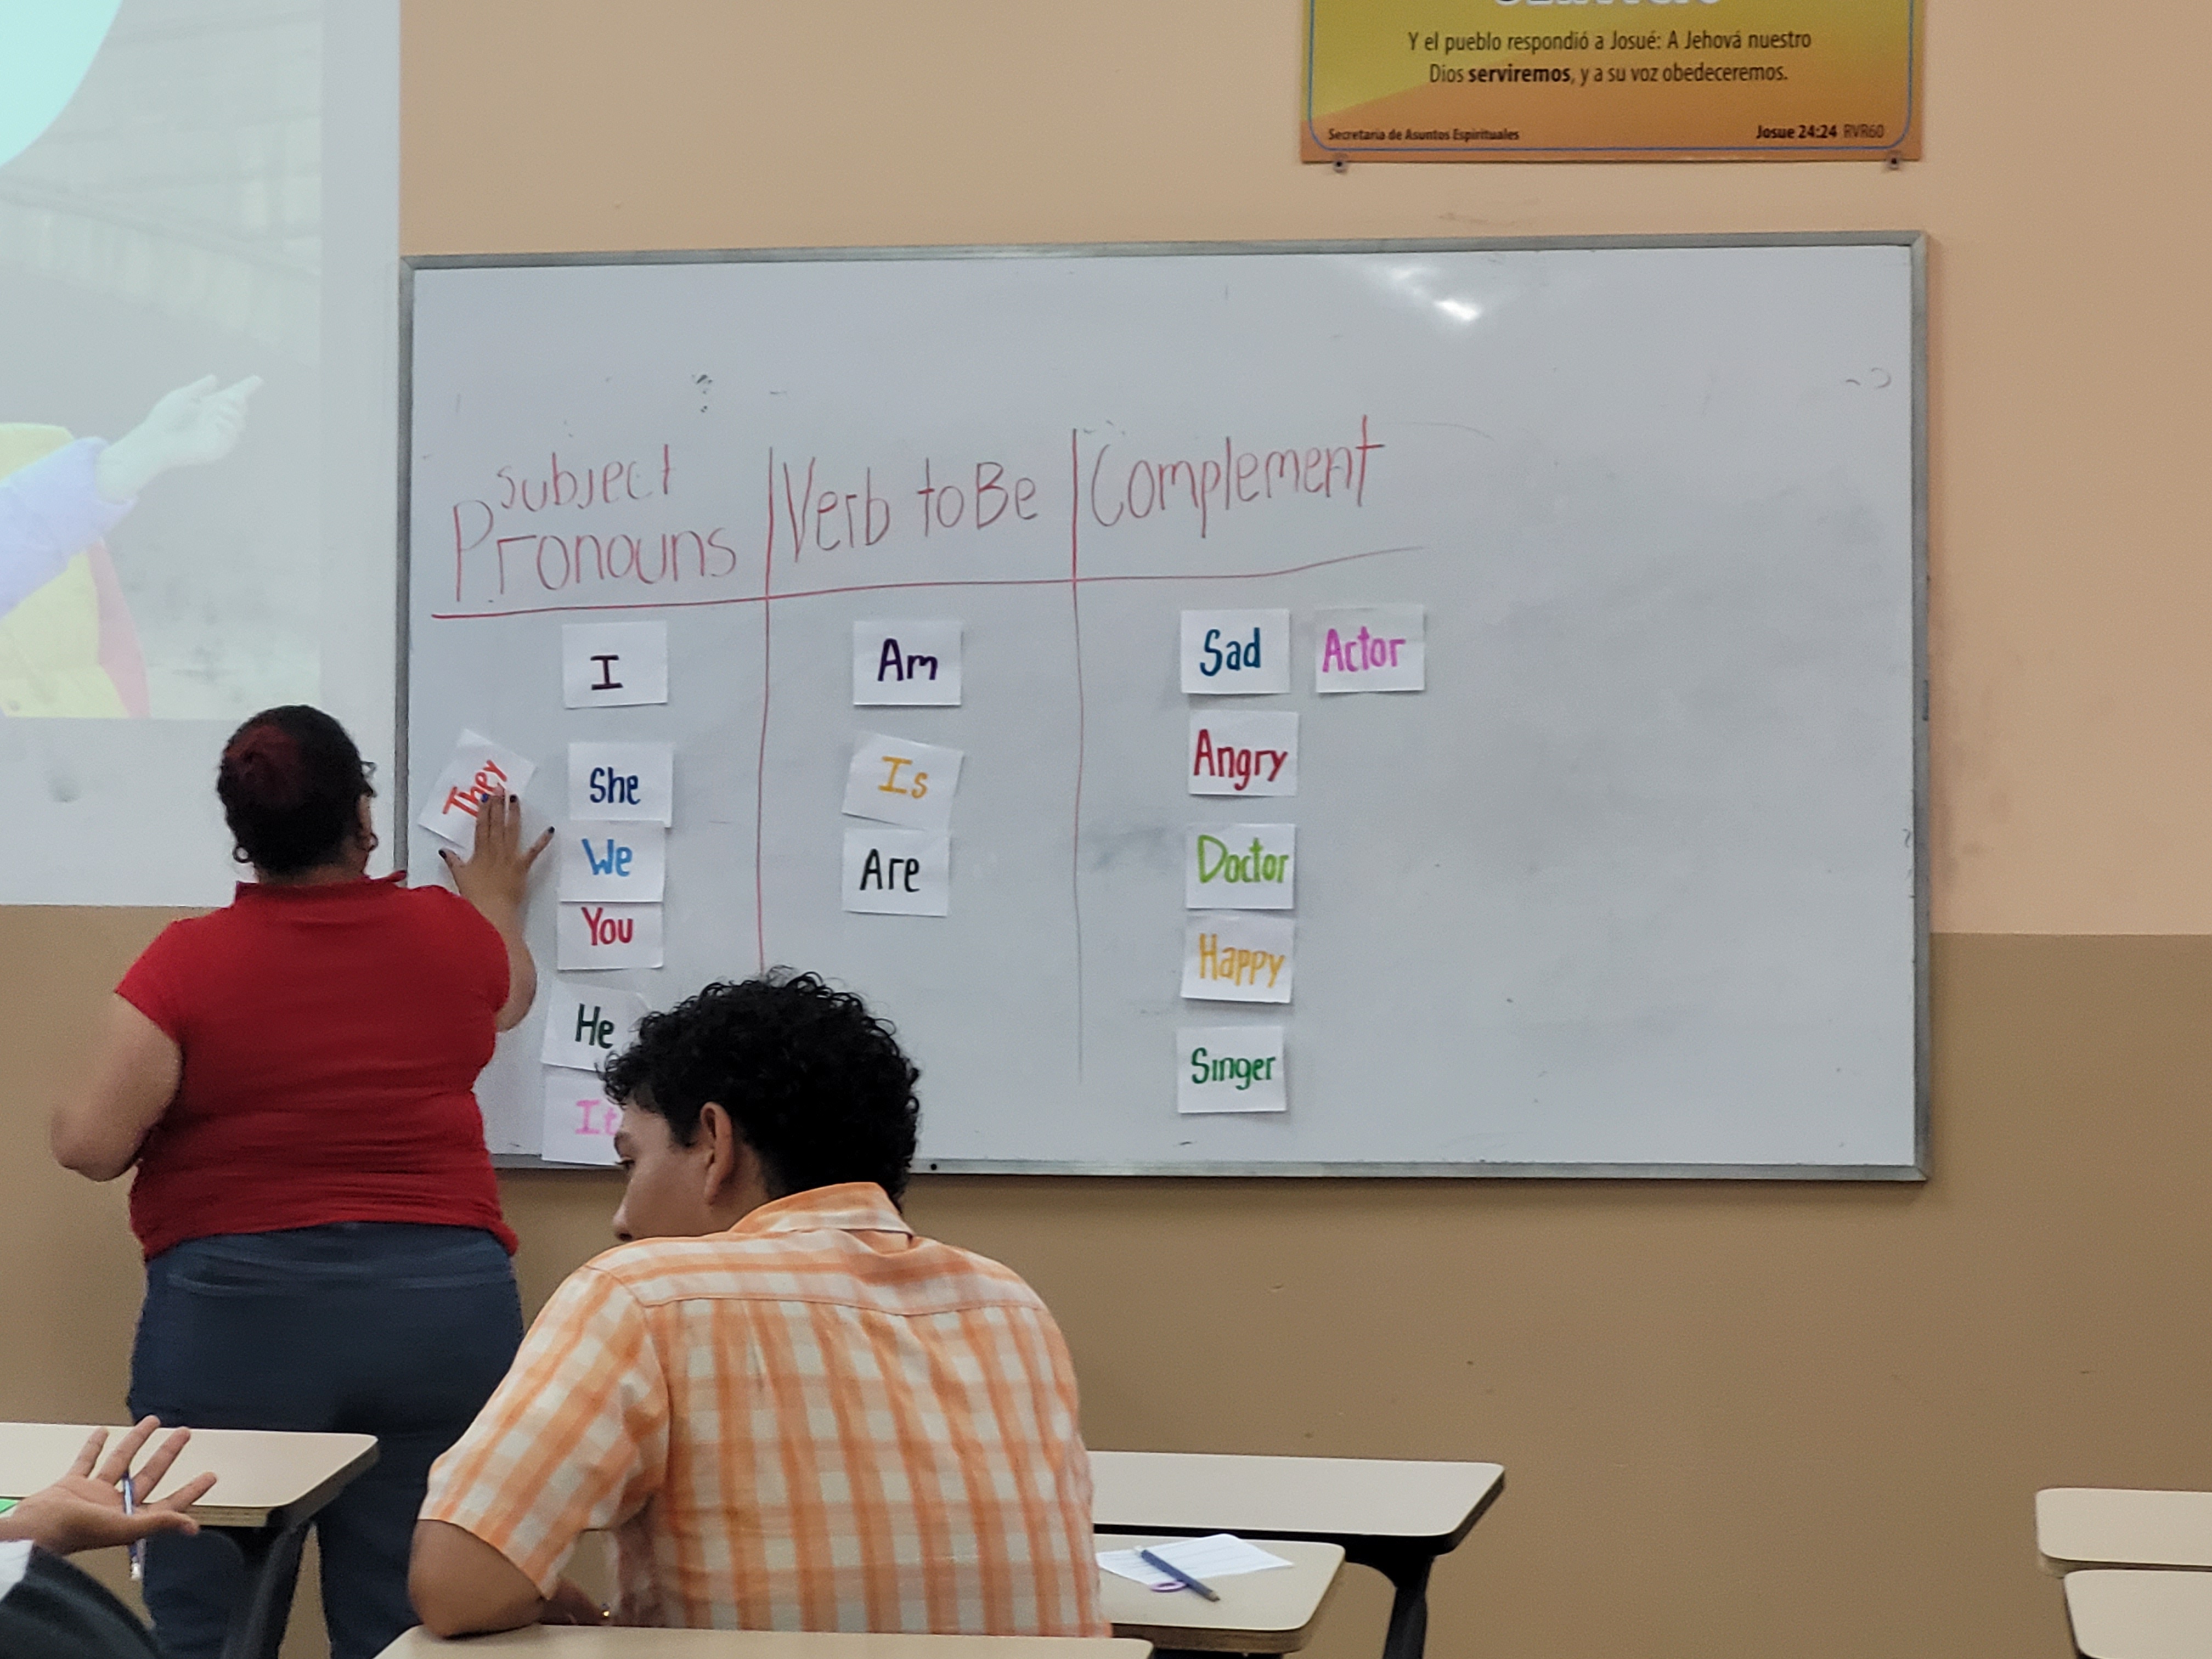 Y el pueblo respondió a Josué: A Jehová nuestro
Dios serviremos, y a su voz obedeceremos.
Secretaria de Asuntos Espirituales
Josue 24:24 RVR60
Subject
Pronouns
Verb to Be
Complement
I
They
She
We
You
He
It
Am
Is
Are
Sad
Actor
Angry
Doctor
Happy
Singer